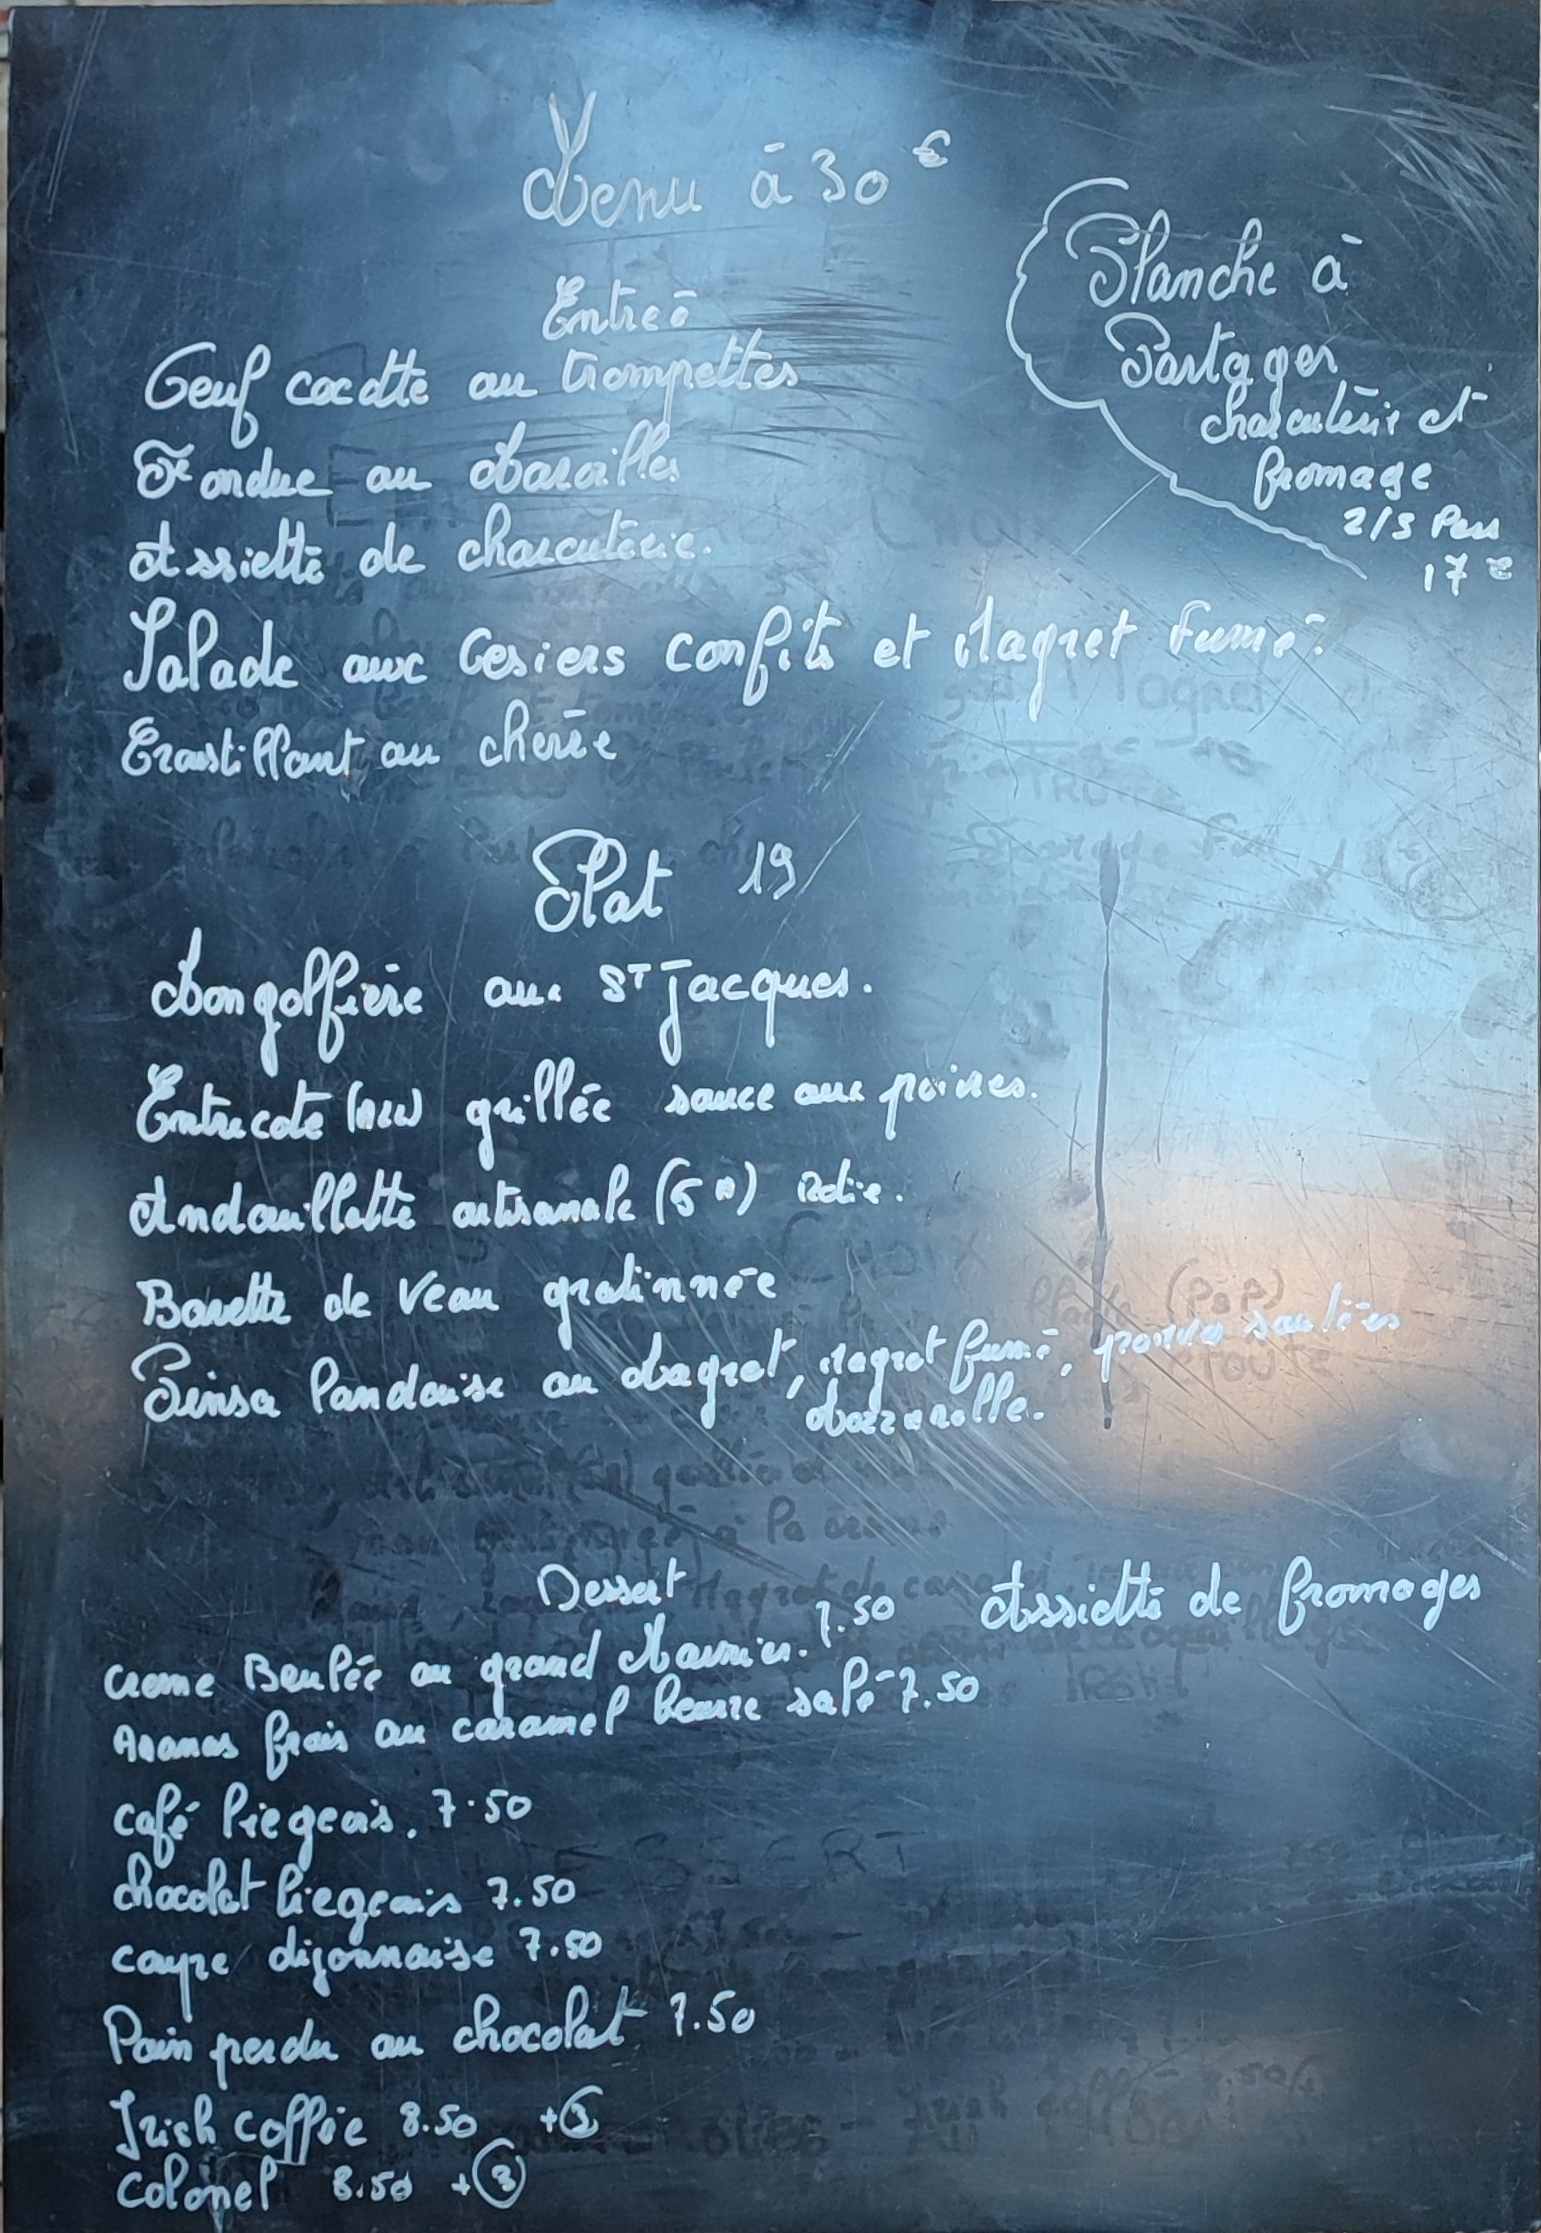 Menu à 30 €
Planche à
Partager
charcuterie et
fromage
2/3 Pers
17 €
Entreé
Oeuf cocotte au trompettes
Fondue au Maroilles
Assiette de charcuterie.
Salade aux Gesiers confits et Magret Fumé.
Croustillant au chèvre
Plat 19
Mongolfière aux St Jacques.
Entrecote grillée sauce aux poivres.
Andouillette artisanale (5 A) rotie.
Bavette de Veau gratinnée
Pinsa landaise au Magret, Magret fumé, poires sautées
Mozzarolle.
Dessert
Assiette de fromages
creme Brulée au grand Marnier. 7.50
Ananas frais au caramel beurre salé 7.50
café liegeois. 7.50
chocolat liegeois 7.50
coupe dijonnaise 7.50
Pain perdu au chocolat 7.50
Irish coffee 8.50 +3
Colonel 8.50 +3